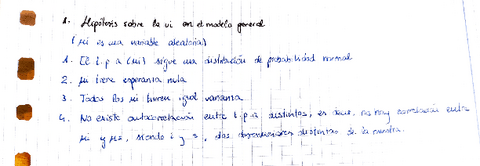 1. Hipótesis sobre la ui en el modelo general
(ui es una variable aleatoria)
1. El t.p.a (ui) sigue una distribución de probabilidad normal
2. ui tiene esperanza nula
3. Todas las ui tienen igual varianza
4. No existe autocorrelación entre t.p.a distintas, es decir, no hay correlación entre
ui y us, siendo i y s, dos observaciones distintas de la muestra.